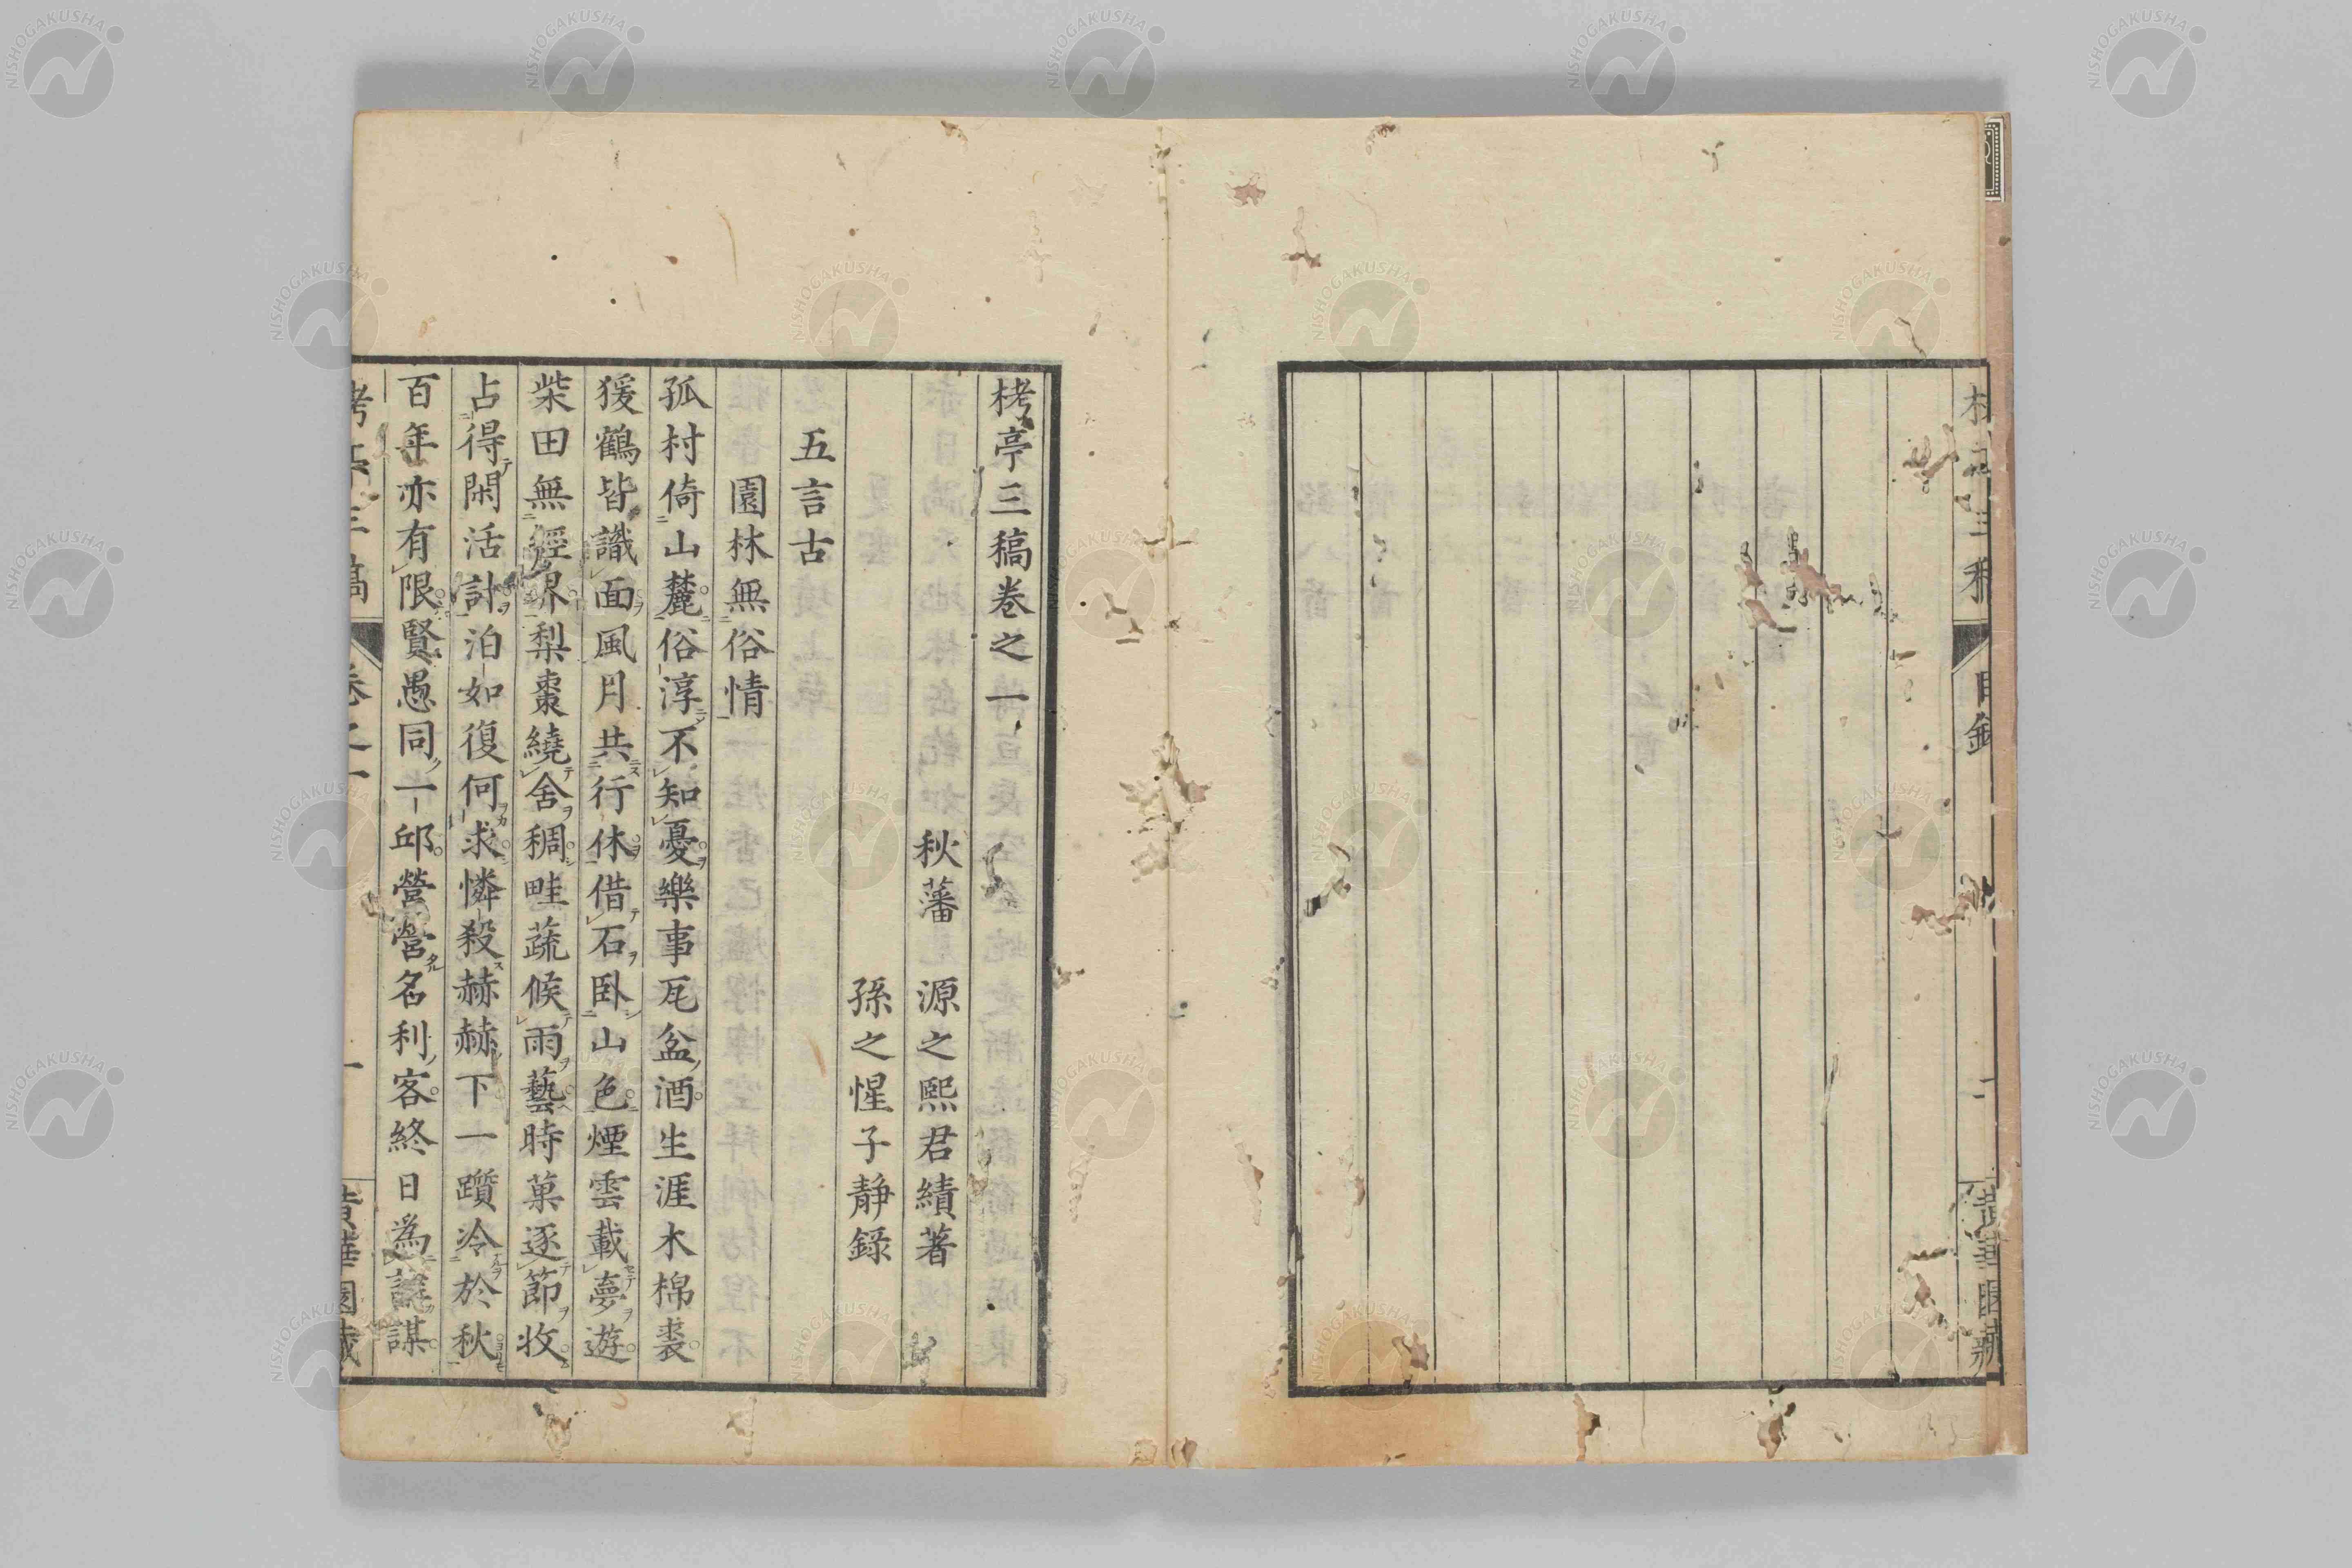 目錄
栲亭三稿卷之一
秋藩 源之熙君績著
孫之惺子靜錄
五言古
園林無俗情
孤村倚山麓俗淳不知憂樂事瓦盆酒生涯木棉裘
猨鶴皆識面風月共行休借石臥山色煙雲載夢遊
柴田無經界梨棗繞舍稠畦蔬候雨藝時菓逐節收
占得閑活計泊如復何求憐殺赫赫下一躓冷於秋
百年亦有限賢愚同一邱營營名利客終日為誰謀
栲亭三稿 卷之一 一 黃華園藏
NISHOGAKUSHA